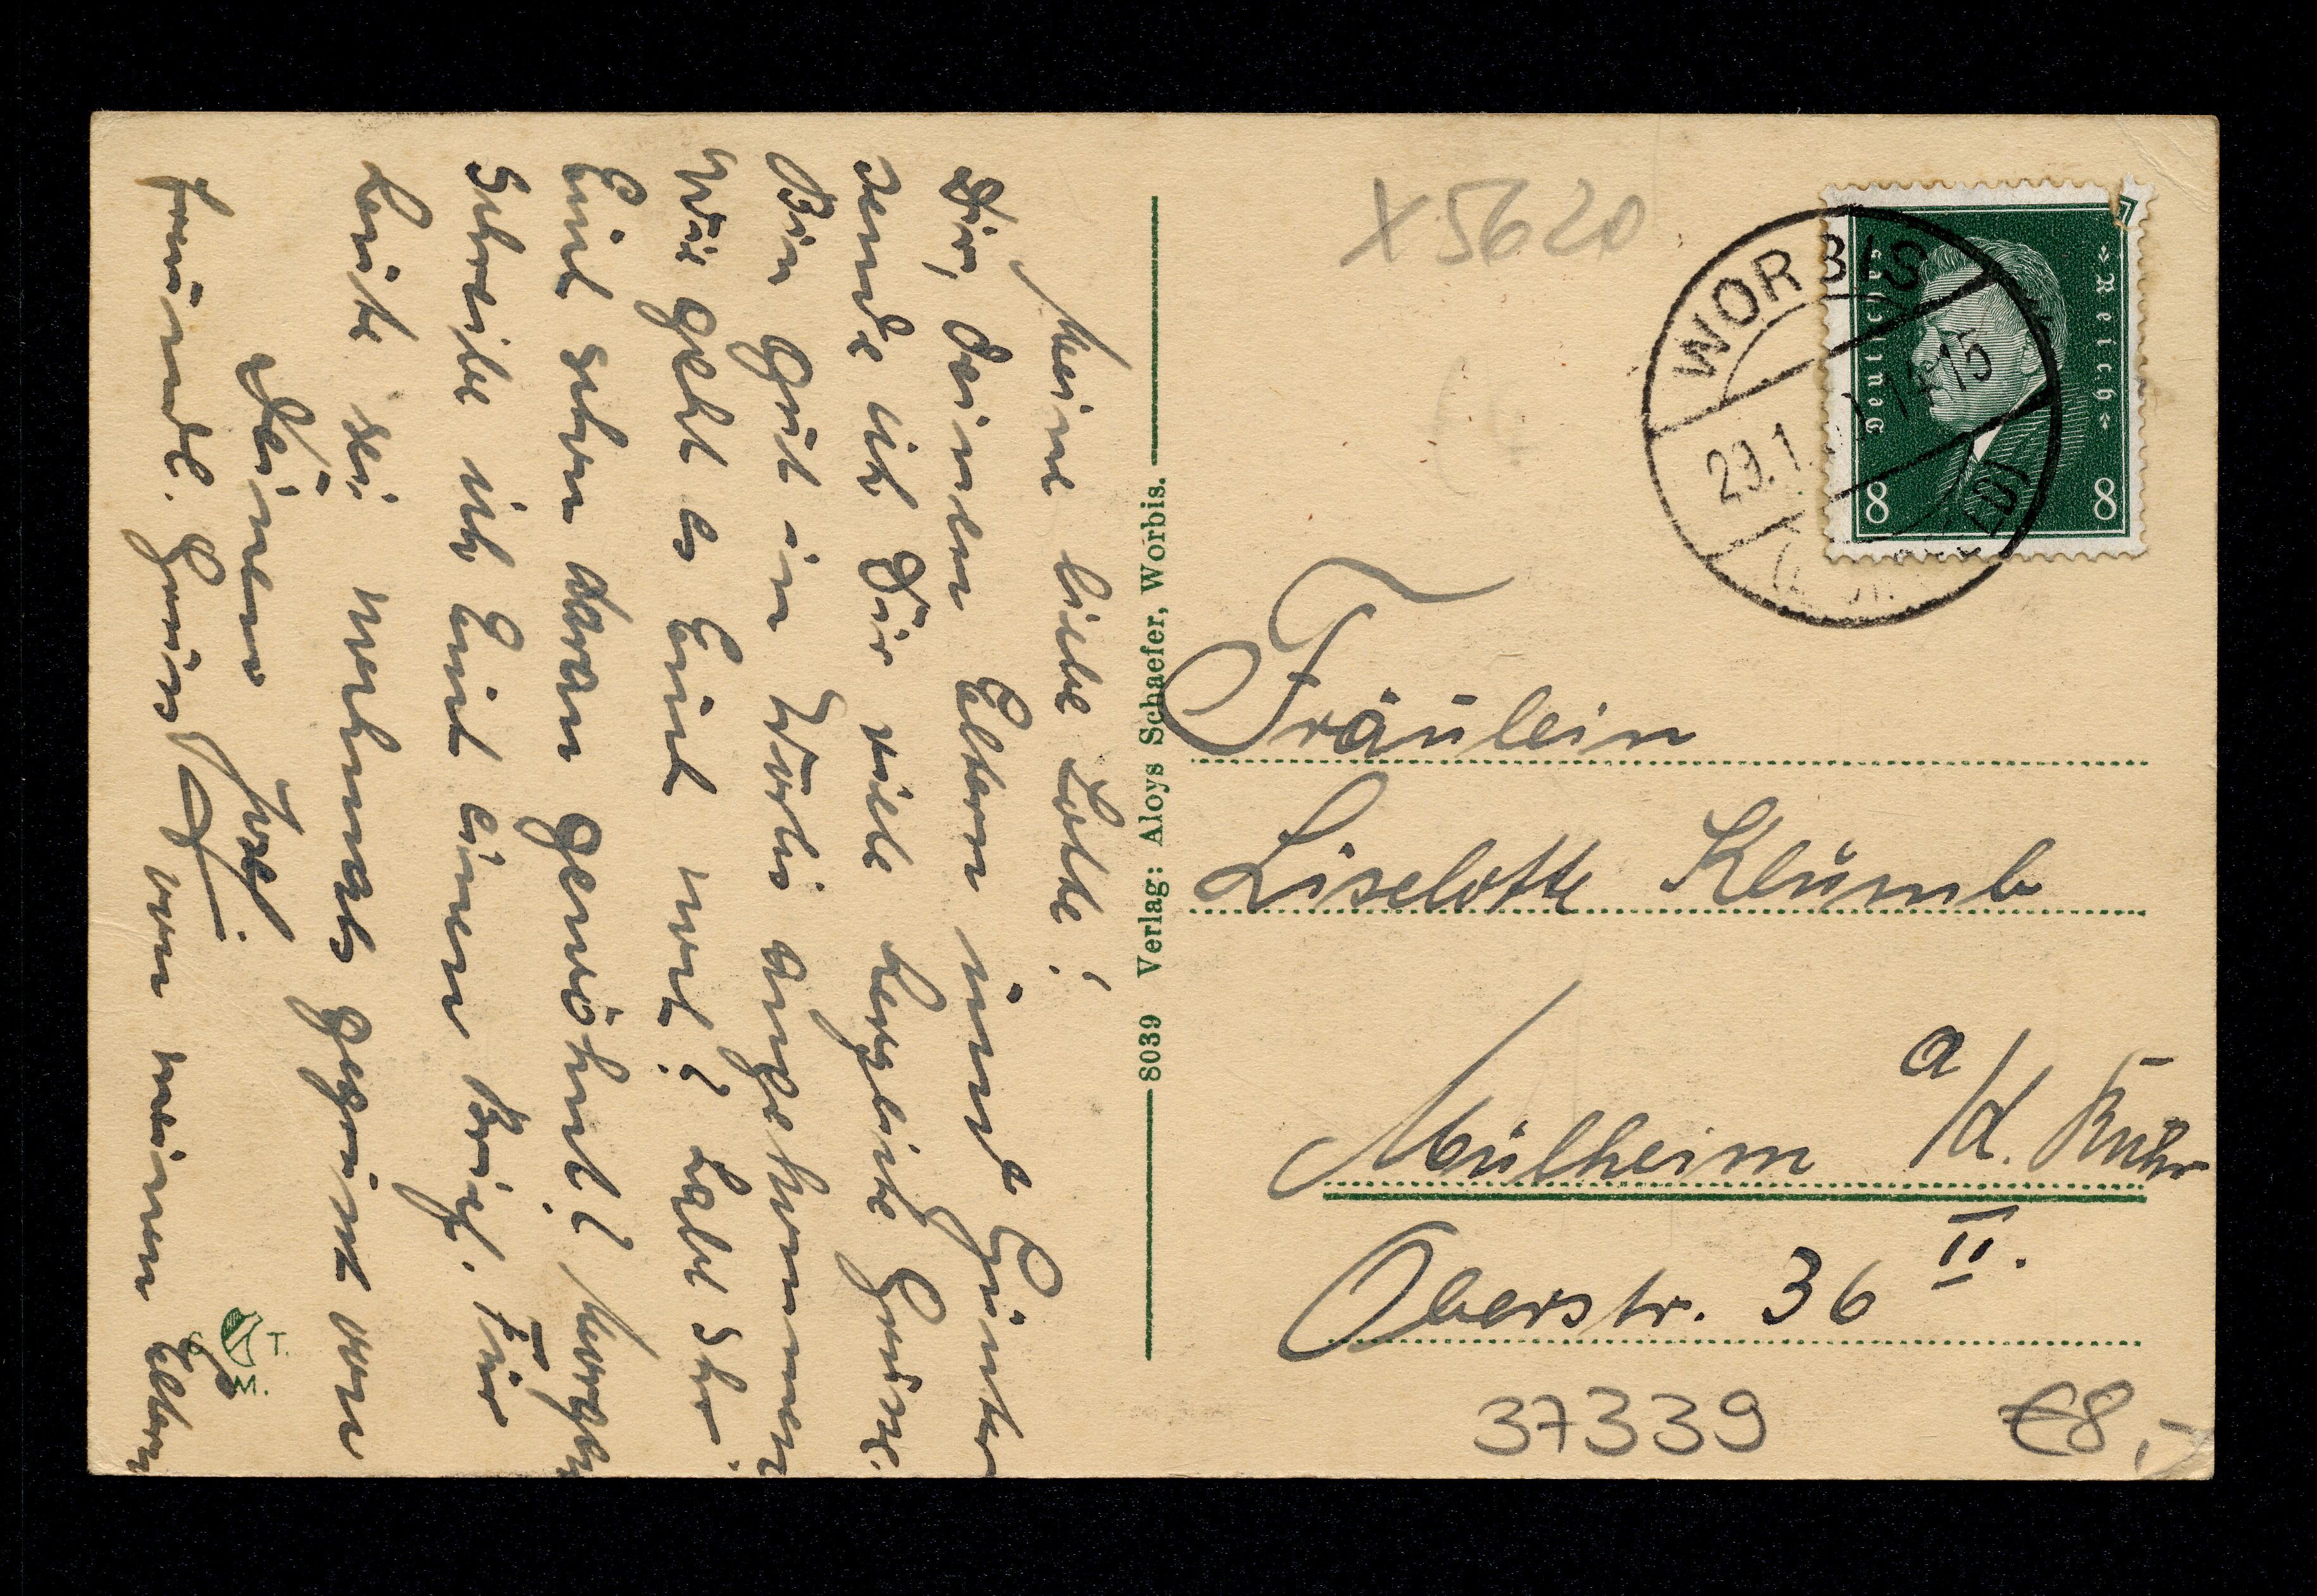 Meine liebe Lotte!
Dir, deinen Eltern und Günter
sende ich Dir viele herzliche Grüsse.
Bin gut in Worbis angekommen
Wie geht es Euch
Euch schon daran gewöhnt? Morgen
schreibe ich Euch einen Brief. Für
heute sei nochmals gegrüsst von
Deinem
freunde. Gruss von meinen Eltern
8039 Verlag: Aloys Schaefer, Worbis.
X 5620
WORBIS
29.1
15
Deutsches Reich
8 8
Fräulein
Liselotte Klumb
Mülheim a/d. Ruhr
Oberstr. 36 II.
37339 €8,-
T.
M.